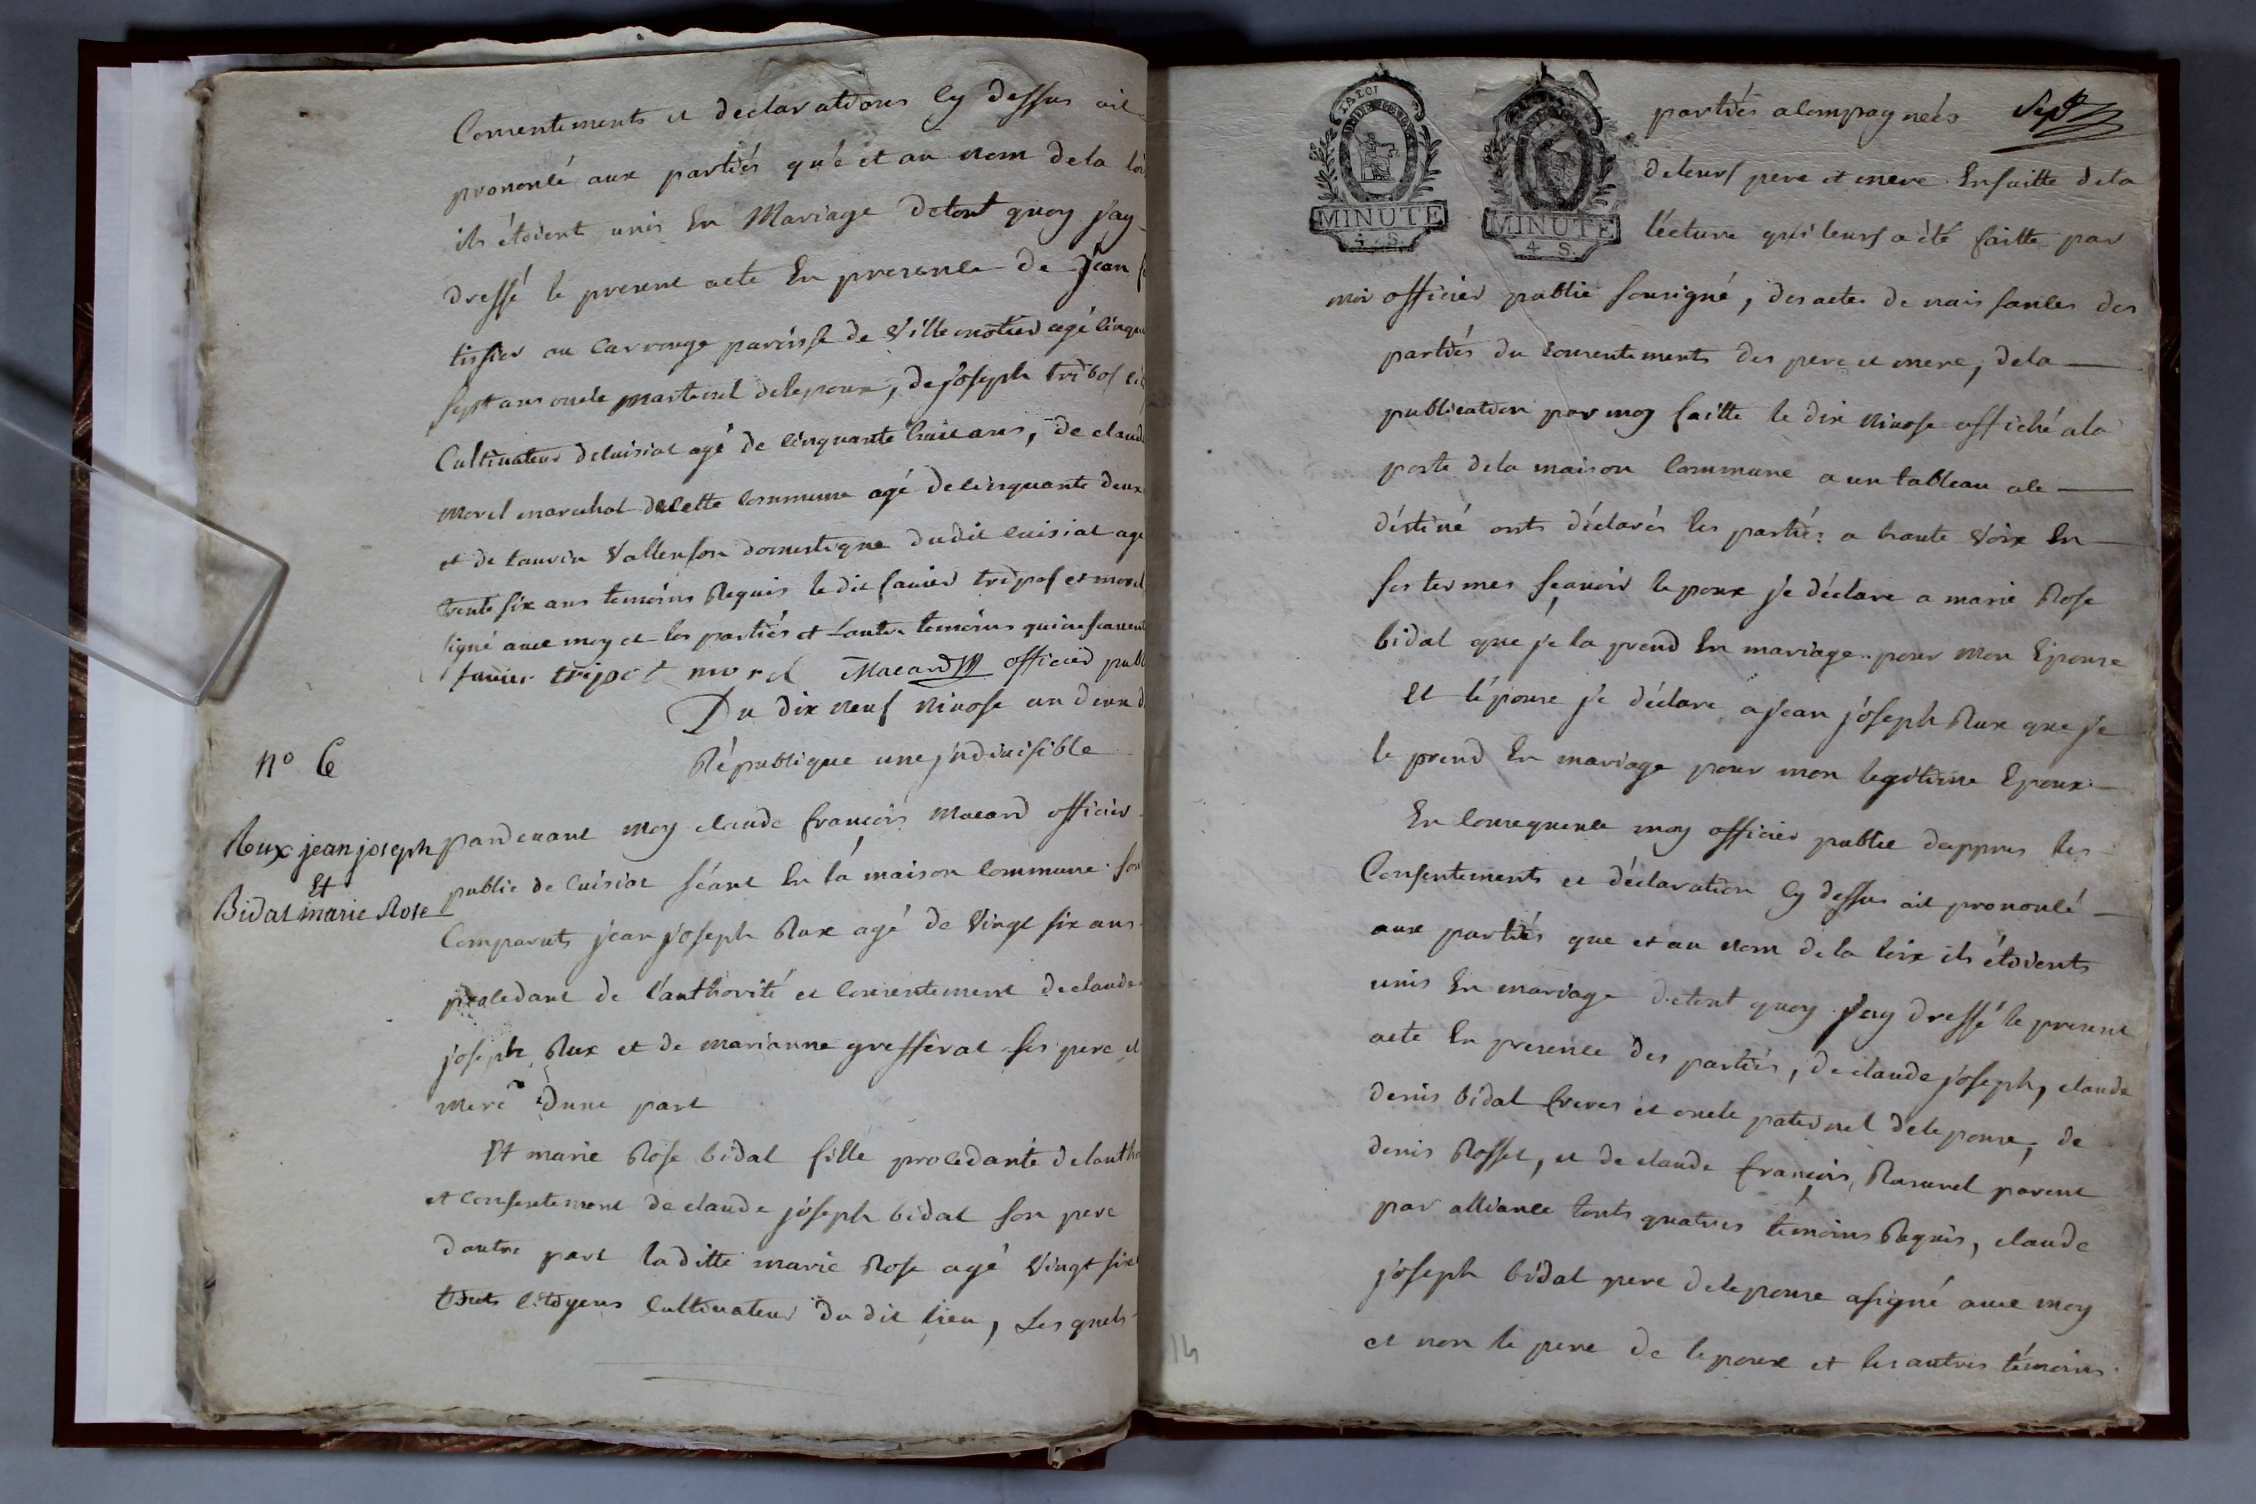 Consentements et declarations Cy dessus ait
prononcé aux partiés qu'é et au nom de la loi
ils étoient unis En Mariage detout quoy j'ay
dressé le present acte En presence de jean
tissier au Carrouge paroisse de Villemotier agé cinqu
sept ans oncle maternel delepoux, de joseph tribos
Cultivateur decuisiat agé de cinquante huit ans, de claude
morel marechal decette commune agé decinquante deux
et de tauvin Vallenson domestique dudit cuisiat agé
trente six ans temoins Requis le dit favier tripos et morel
signé avec moy et les partiés et Lautre temoins quinescavent
favier tripot morel Macard officier publ
Du dix neuf nivose an deux d
République une jndivisible
n° 6
Rux jean joseph
Et
Bidal marie Rose
pardevant moy claude francois Macard officier
public de Cuisiat séant En la maison Commune son
Comparuts jean joseph Rux agé de Vingt six ans
procedant de l'authorité et Consentement declaude
joseph Rux et de marianne grefferat ses pere et
mere dune part
Et marie Rose bidal fille procedante delauth
et consentement de claude joseph bidal son pere
dautre part laditte marie Rose agé Vingt six
touts Citoyens Cultivateur du dit lieu, Lesquels
MINUTE
4 S.
MINUTE
4 S.
partiés acompagneés Sept
deleurs pere et mere Ensuitte dela
lécture qui leurs a été faitte par
moi officier public sousigné, des actes de naissances des
partiés du consentements des pere et mere, dela
publication par moy faitte le dix nivose affiché ala
porte dela maison Commune a un tableau ace
déstiné onts déclarés les partiés a haute Voix En
ses termes sçavoir lepoux je déclare a marie Rose
bidal que je la prend En mariage pour mon Epouse
et lépouse je déclare a jean joseph Rux que je
le prend En mariage pour mon legitime Epoux
En Consequence moy officier public dappres les
Consentements et déclaration Cy dessus ait prononcé
aux partiés que et au nom de la loix ils étoients
unis En mariage detout quoy jay dressé le present
acte En presence des partiés, declaude joseph, claude
denis bidal freres et oncle paternel delepouse, de
denis Rosset, et de claude francois Ravurel parent
par alliance touts quatres témoins Requis, claude
joseph bidal pere delepouse asigné avec moy
et non le pere de lepoux et les autres témoins
14